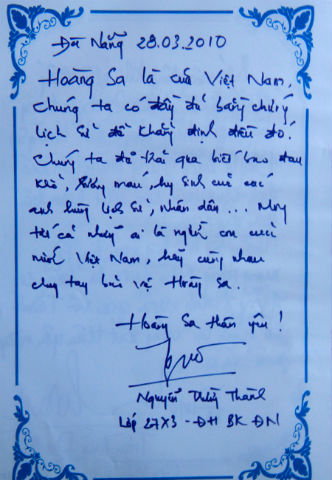 Đà Nẵng 28.03.2010
Hoàng Sa là của Việt Nam,
Chúng ta có đầy đủ bằng chứng
lịch sử để khẳng định điều đó.
Chúng ta đã trải qua biết bao đau
khổ, xương máu, hy sinh của các
anh hùng lịch sử, nhân dân ... Mong
tất cả những ai là người con của
nước Việt Nam, hãy cùng nhau
chung tay bảo vệ Hoàng Sa.
Hoàng Sa thân yêu!
Nguyễn Thành
Lớp 27X3 - ĐH BK ĐN